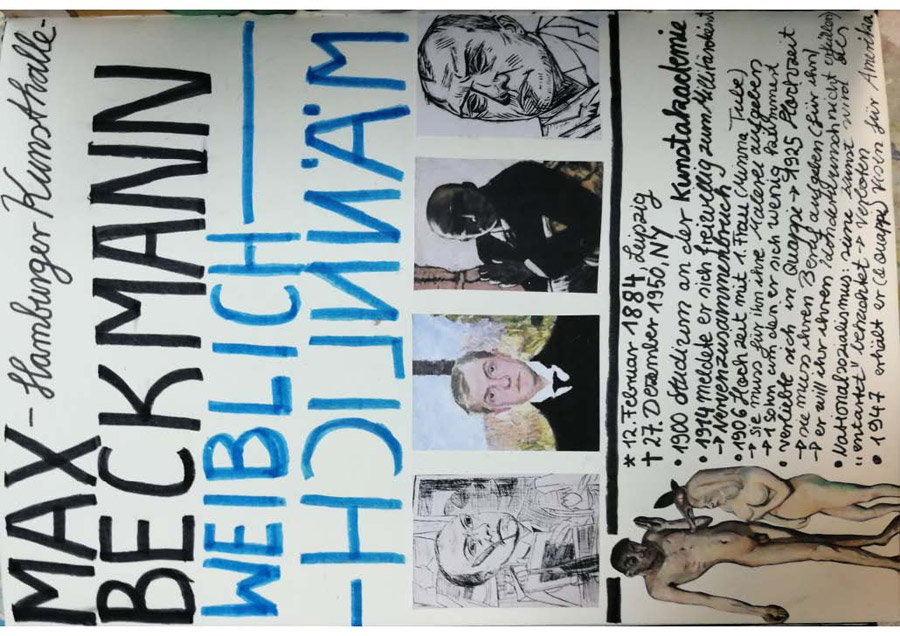 MAX – Hamburger Kunsthalle –
BECKMANN
WEIBLICH —
— MÄNNLICH
* 12. Februar 1884, Leipzig
† 27. Dezember 1950, NY
• 1900 Studium an der Kunstakademie
• 1914 meldete er sich freiwillig zum Militärdienst
→ Nervenzusammenbruch
• 1906 Hochzeit mit 1. Frau (Minna Tube)
→ sie muss für ihn ihre Malerei aufgeben
→ 1 Sohn um den er sich wenig kümmert
• verliebte sich in Quappe → 1925 Hochzeit
→ sie muss ihren Beruf aufgeben (für ihn)
→ er will ihr ihren Kinderwunsch nicht erfüllen)
• Nationalsozialismus: seine Kunst wird als
"entartet" betrachtet → Verboten
• 1947 erhält er (& Quappe) Visen für Amerika